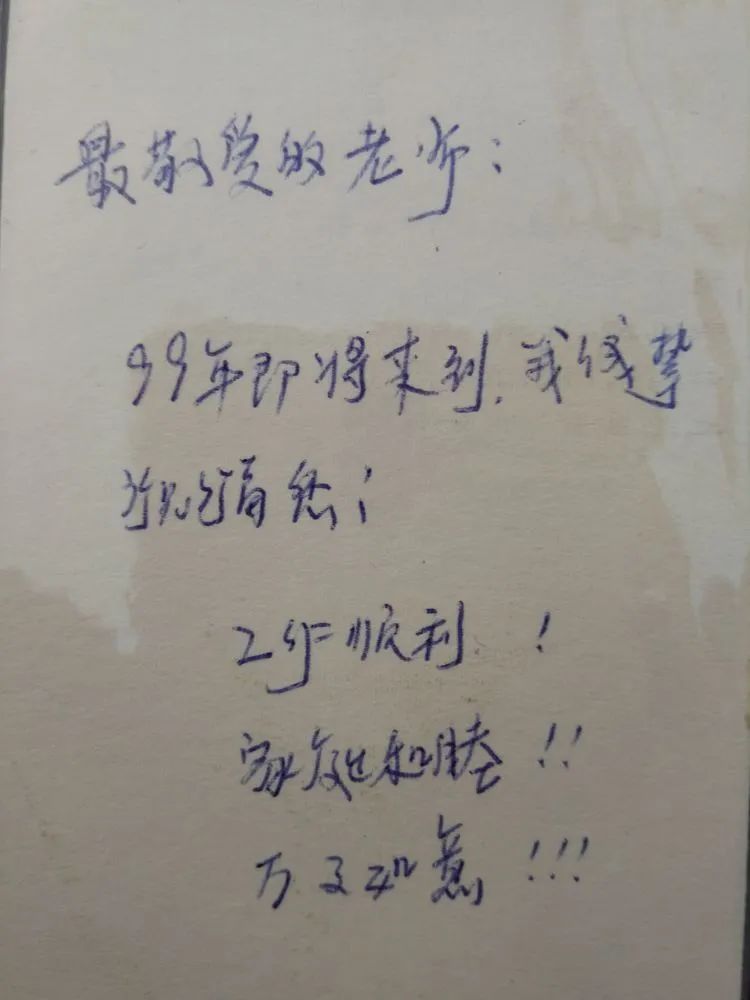 最敬爱的老师:
99年即将来到,我诚挚
祝福您:
工作顺利!
家庭和睦!!
万事如意!!!